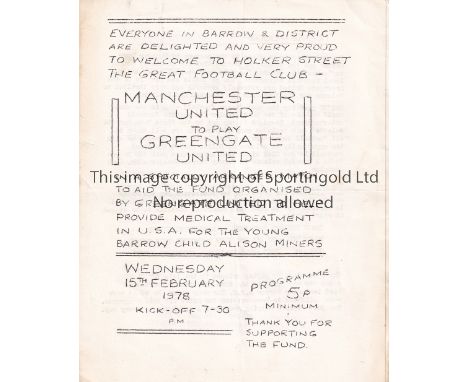 EVERYONE IN BARROW & DISTRICT
ARE DELIGHTED AND VERY PROUD
TO WELCOME TO HOLKER STREET
THE GREAT FOOTBALL CLUB –
MANCHESTER
UNITED
TO PLAY
GREENGATE
UNITED
This image copyright of Sportingold Ltd
TO AID THE FUND ORGANISED
No reproduction allowed
PROVIDE MEDICAL TREATMENT
IN U.S.A. FOR THE YOUNG
BARROW CHILD ALISON MINERS
WEDNESDAY
15TH FEBRUARY
1978
KICK-OFF 7-30
P.M
PROGRAMME
5P
MINIMUM
THANK YOU FOR
SUPPORTING
THE FUND.